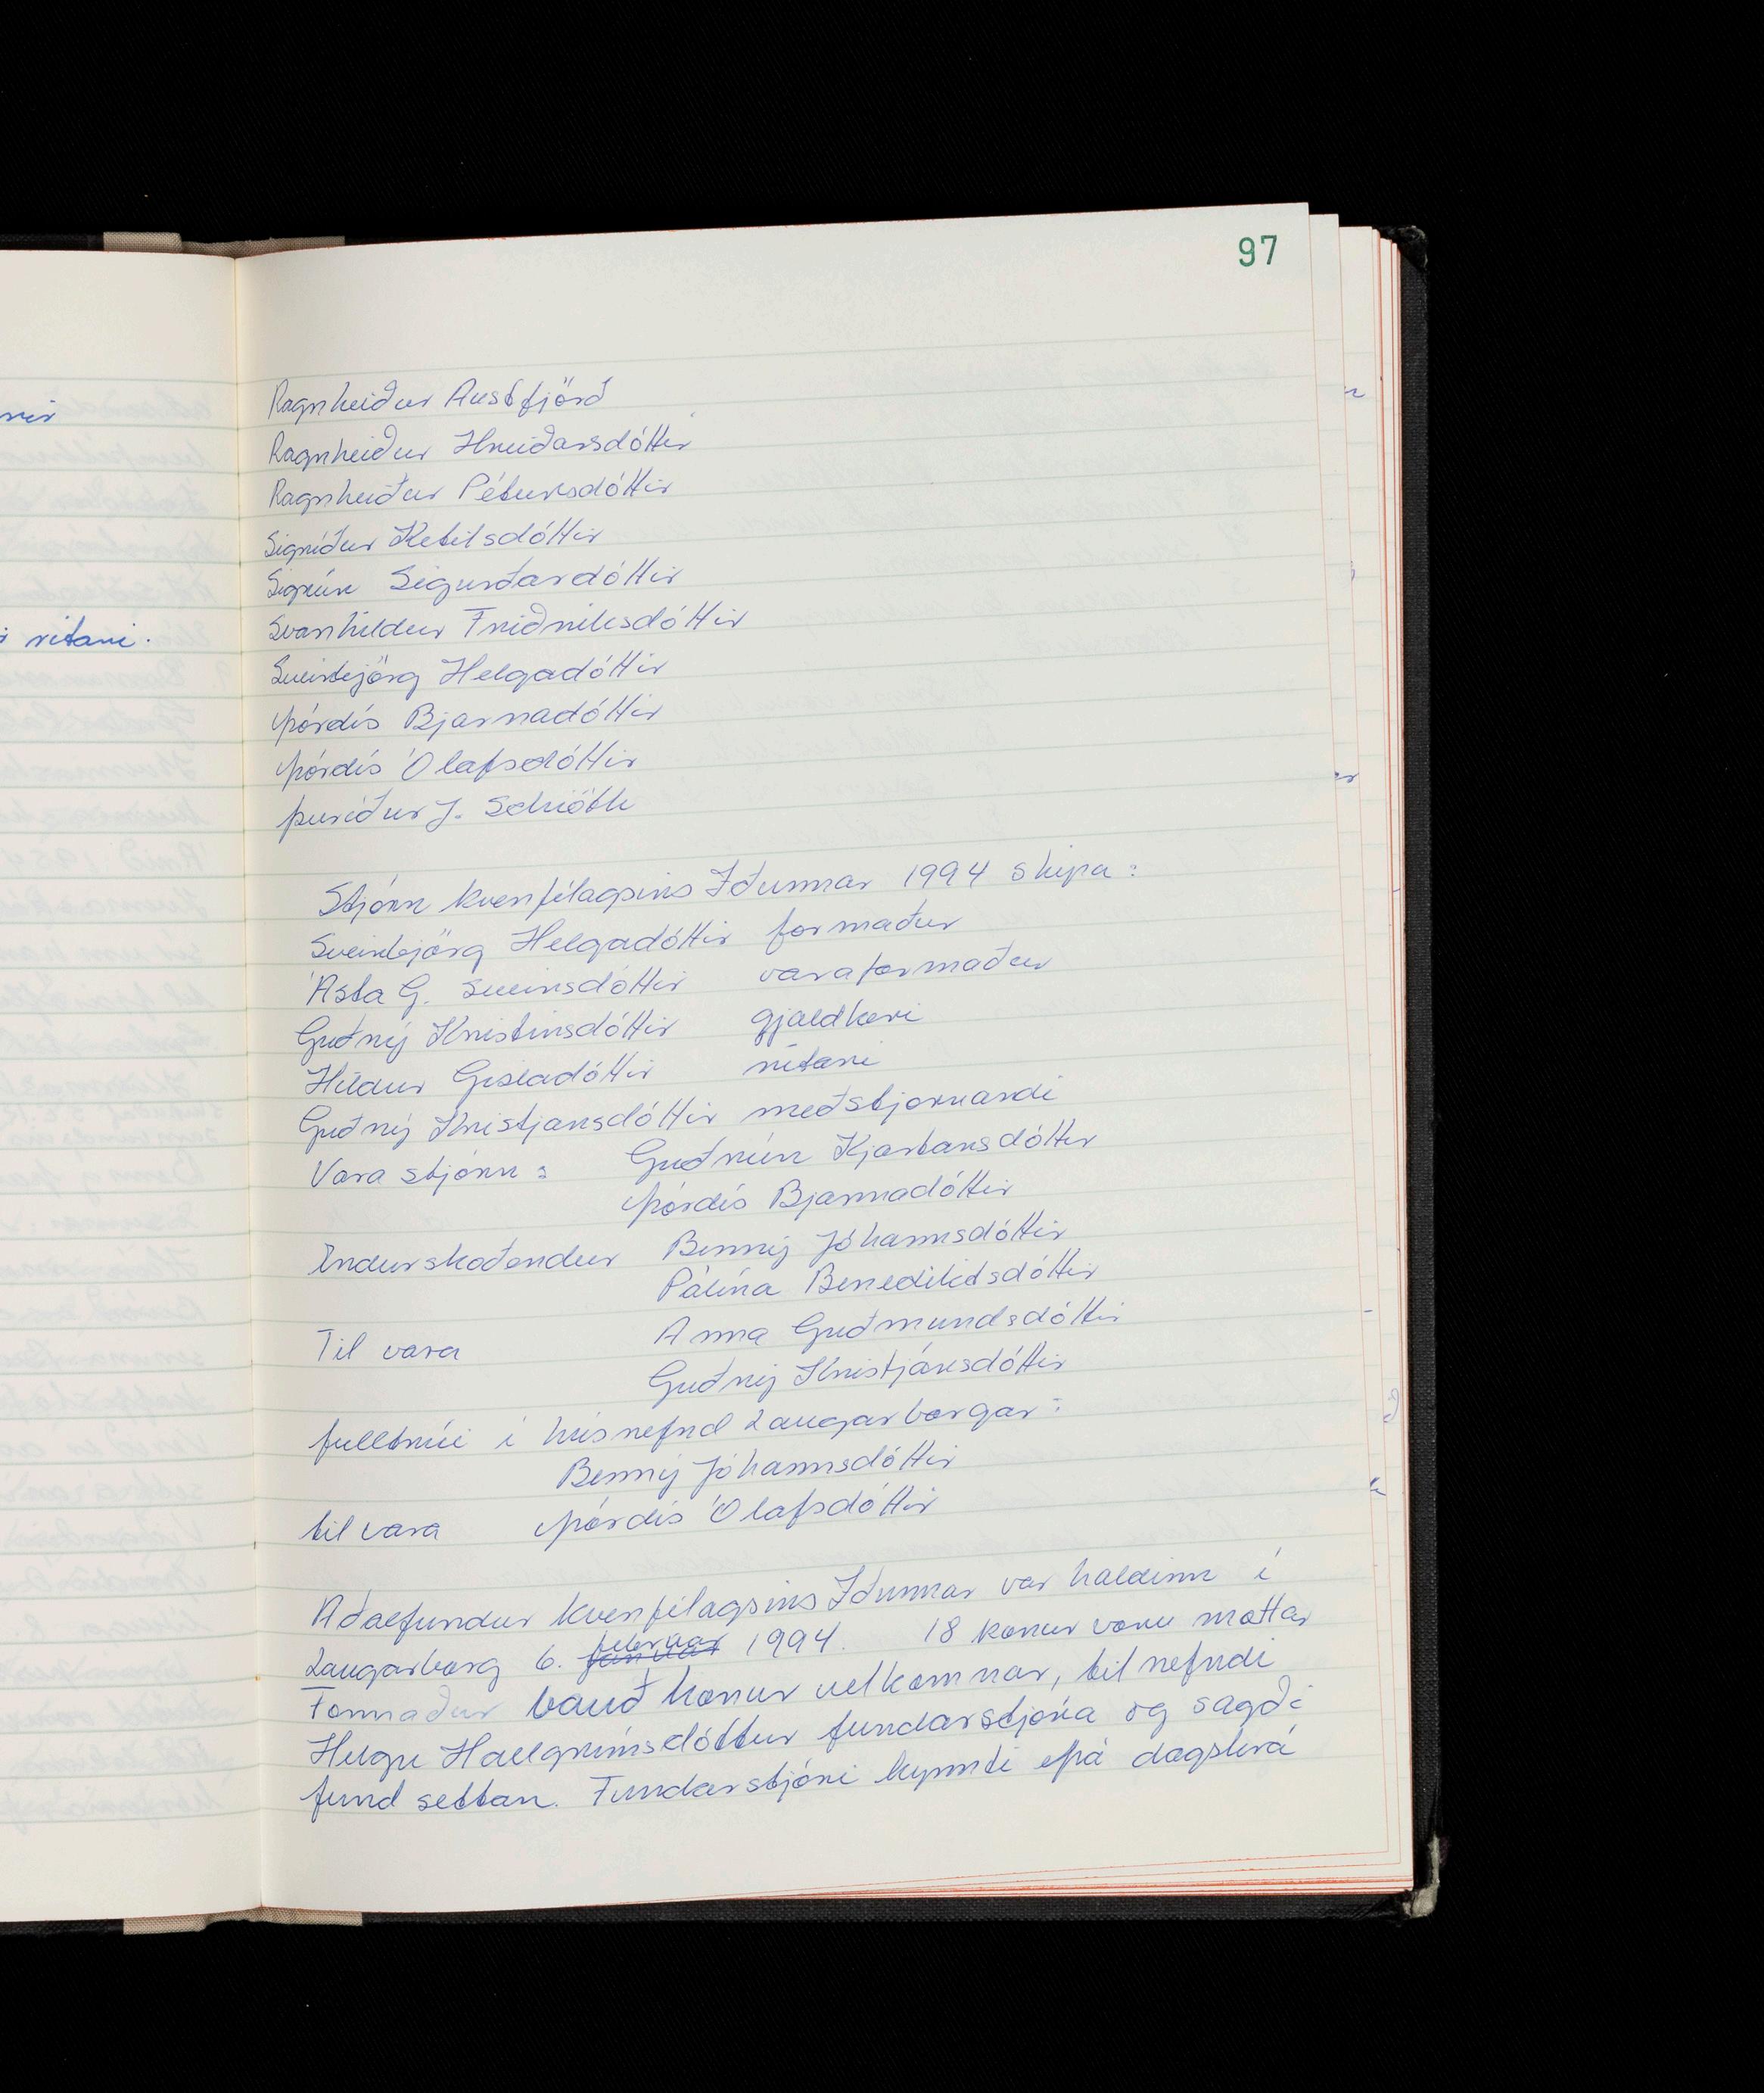 97
Ragnheiður Austfjörð
Ragnheiður Hreiðarsdóttir
Ragnheiður Pétursdóttir
Sigríður Ketilsdóttir
Sigrún Sigurðardóttir
Svanhildur Friðriksdóttir
Sveinbjörg Helgadóttir
Þórdís Bjarnadóttir
Þórdís Ólafsdóttir
Þuríður J. Schiöth
Stjórn kvenfélagsins Iðunnar 1994 skipa:
Sveinbjörg Helgadóttir formaður
Ásta G. Sveinsdóttir varaformaður
Guðný Kristinsdóttir gjaldkeri
Hildur Gísladóttir ritari
Guðný Kristjansdóttir meðstjornandi
Vara stjórn: Guðrún Kjartansdóttir
Þórdís Bjarnadóttir
Endurskoðendur Benný Jóhannsdóttir
Pálína Benediktsdóttir
Til vara Anna Guðmundsdóttir
Guðný Kristjánsdóttir
fulltrúi í húsnefnd Laugarborgar:
Benný Jóhannsdóttir
til vara Þórdís Ólafsdóttir
Aðalfundur kvenfélagsins Iðunnar var haldinn í
Laugarborg 6. februar janúar 1994. 18 konur voru mættar
Formaður bauð konur velkomnar, tilnefndi
Helgu Hallgrímsdóttur fundarstjóra og sagði
fund settan. Fundarstjóri kynnti þá dagskrá
ritari.